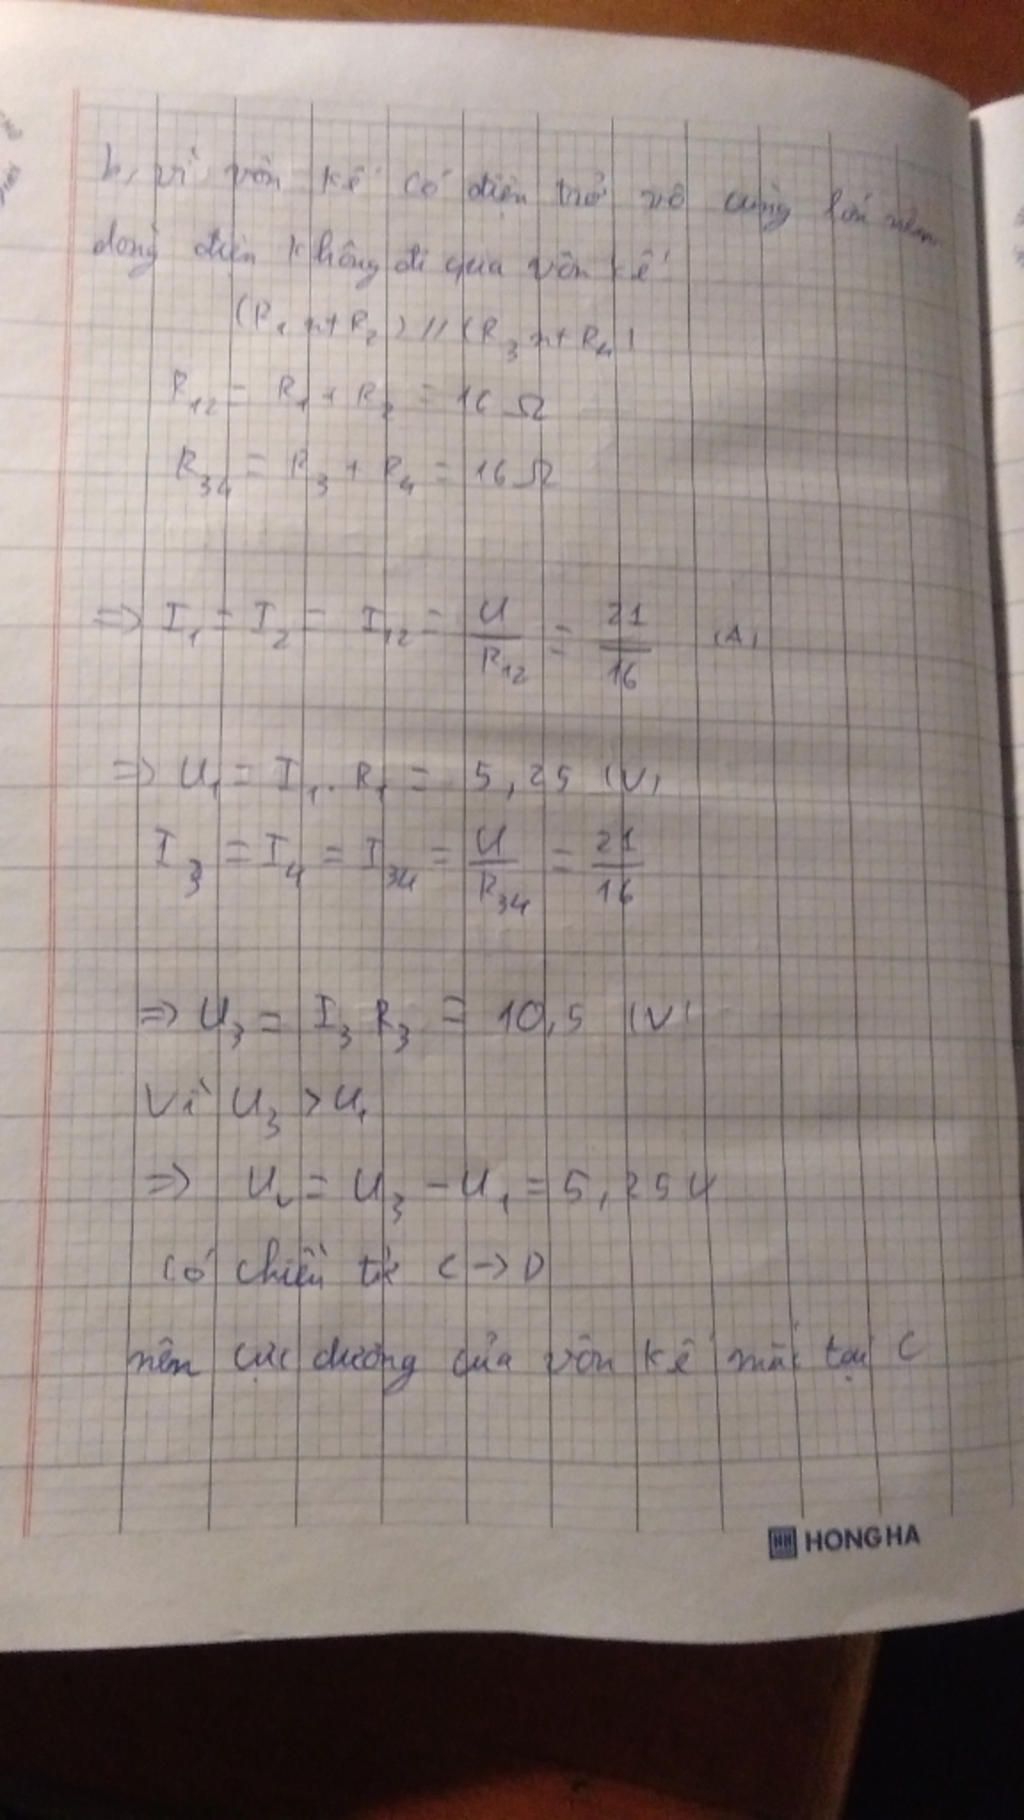 b, vì vôn kế có điện trở vô cùng lớn nên
dòng điện không đi qua vôn kế
(R₁ nt R₂) // (R₃ nt R₄)
R₁₂ = R₁ + R₂ = 16 Ω
R₃₄ = R₃ + R₄ = 16 Ω
=> I₁ = I₂ = I₁₂ = U/R₁₂ = 21/16 (A)
=> U₁ = I₁. R₁ = 5,25 (V)
I₃ = I₄ = I₃₄ = U/R₃₄ = 21/16
=> U₃ = I₃ R₃ = 10,5 (V)
Vì U₃ > U₁
=> Uᵥ = U₃ - U₁ = 5,25 V
Có chiều từ C -> D
nên cực dương của vôn kế mắc tại C
HH HONG HA